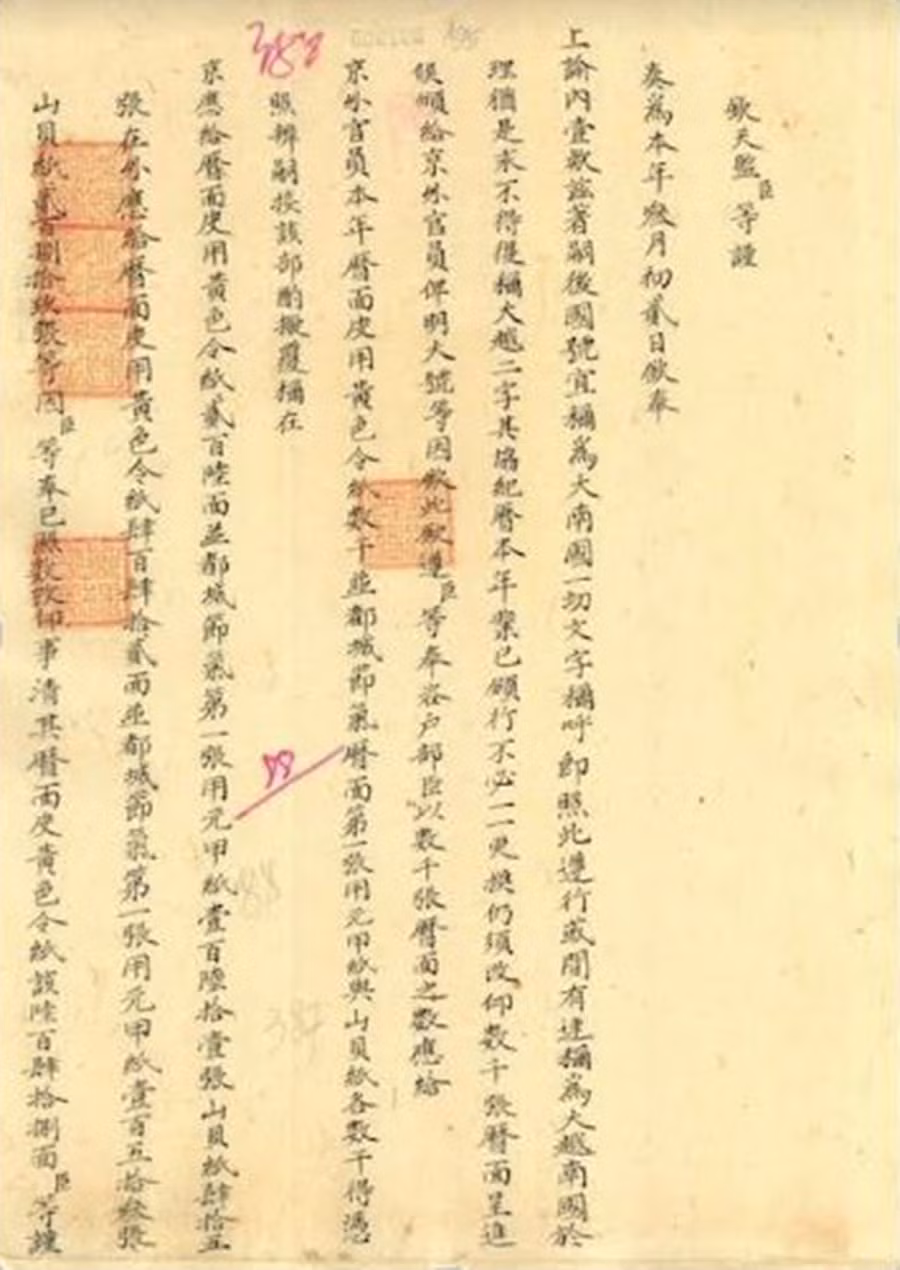 欽天監臣等謹
奏為本年叄月初貳日欽奉
上諭內壹欵茲著嗣後國號宜稱為大南國一切文字稱呼即照此遵行或間有連稱為大越南國於
理猶是永不得復稱大越二字其協紀曆本年業已頒行不必一一更換仍須改印数千張曆面呈進
候頒給京外官員俾明大號等因欽此欽遵臣等奉咨户部臣以数千張曆面之數應給
京外官員本年曆面皮用黃色令紙数千並都城節氣曆面第一張用元甲紙與山貝紙各数千得憑
照辨嗣接該部酌擬覆稱在
京應給曆面皮用黃色令紙貳百陸面並都城節氣第一張用元甲紙壹百陸拾壹張山貝紙肆拾五
張在外應給曆面皮用黃色令紙肆百肆拾貳面並都城節氣第一張用元甲紙壹百五拾叄張
山貝紙貳百捌拾玖張等因臣等奉已照数改印事清其曆面皮黃色令紙該陸百肆拾捌面臣等謹
387
88
88
387